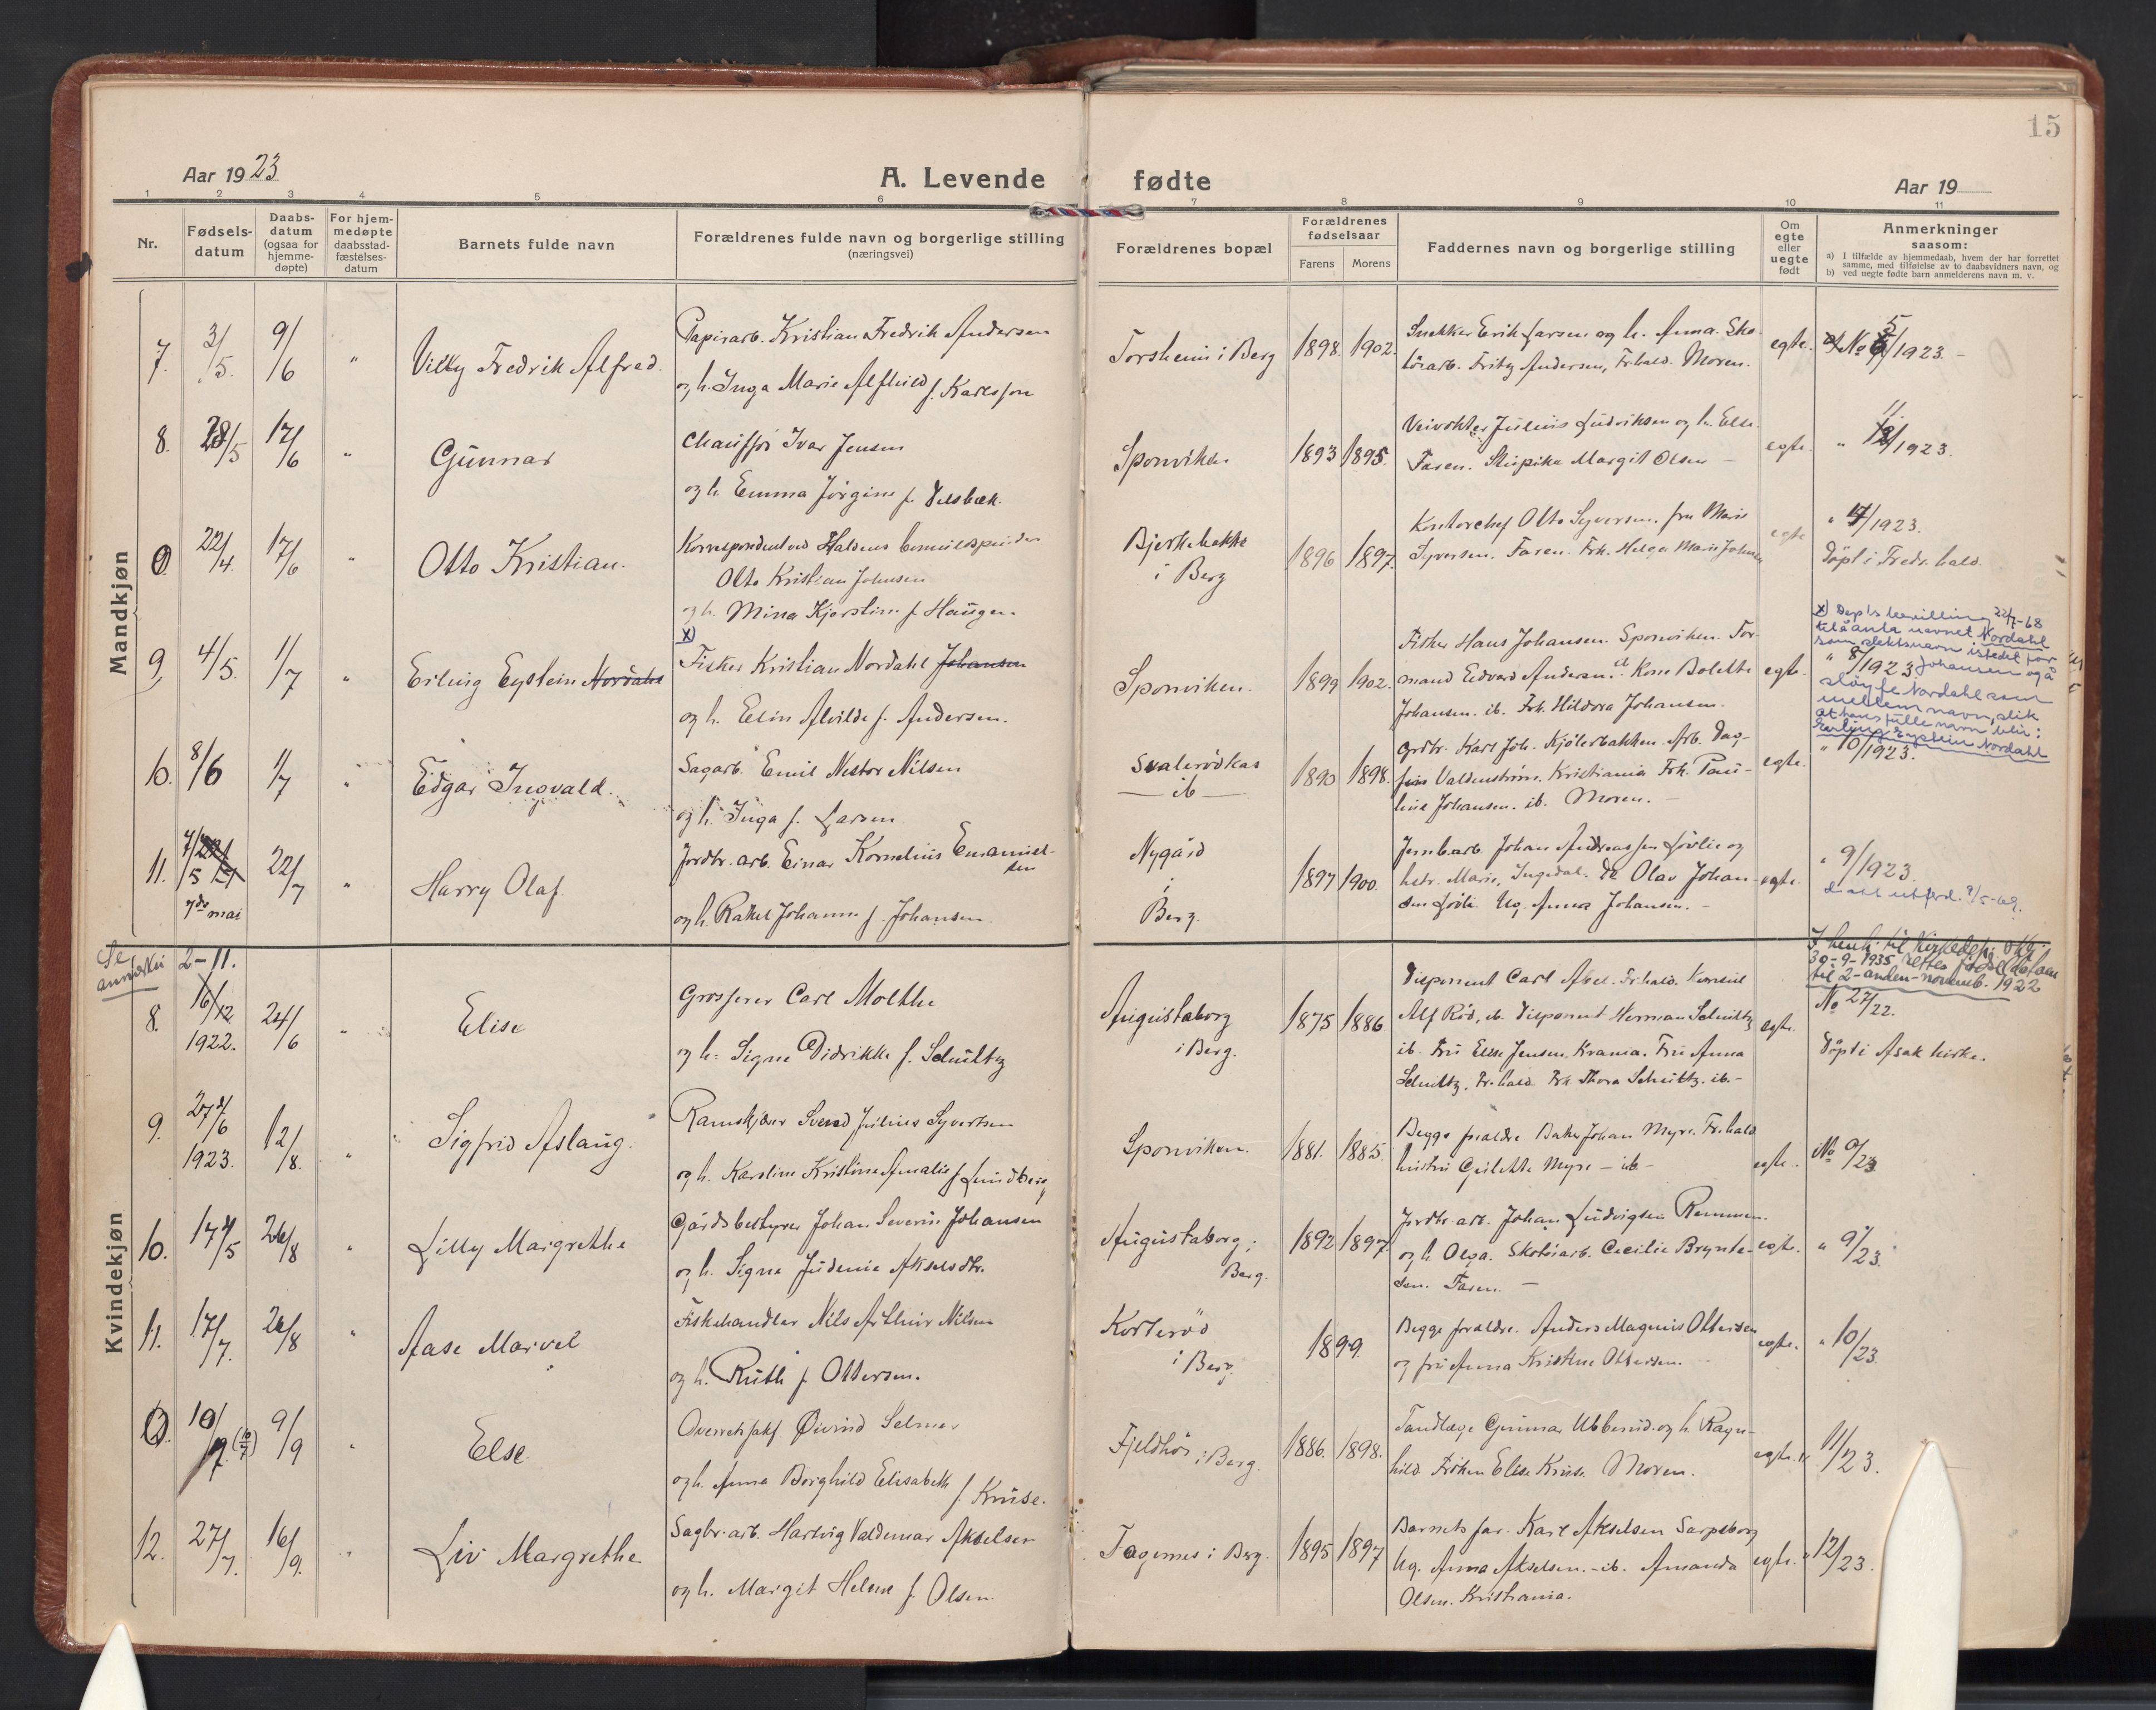 15
Aar 1923
A. Levende fødte
Aar 19
1 2 3 4 5 6 7 8 9 10 11
Nr.
Fødsels-
datum
Daabs-
datum
(ogsaa for
hjemme-
døpte)
For hjem-
medøpte
daabsstad-
fæstelses-
datum
Barnets fulde navn
Forældrenes fulde navn og borgerlige stilling
(næringsvei)
Forældrenes bopæl
Forældrenes
fødselsaar
Farens Morens
Faddernes navn og borgerlige stilling
Om
egte
eller
uegte
født
Anmerkninger
saasom:
a) I tilfælde av hjemmedaab, hvem der har forrettet
samme, med tilføielse av to daabsvidners navn, og
b) ved uegte fødte barn anmelderens navn m. v.
Mandkjøn
7. 3/5. 9/6 " Villy Fredrik Alfred.
Papirarb. Kristian Fredrik Andersen
og h. Inga Marie Alfhild f. Karlsson
Torsheim i Berg 1898. 1902.
Snekker Erik Larsen og h. Anna. Sko-
töiarb. Fritz Andersen, Fr.hald. Moren.
egte. No 5/1923.
8. 28/5 17/6 " Gunnar
Chauffør Ivar Jensen
og h. Emma Jörgine f.
Sponviken 1893 1895.
Veivokter Julius Ludviksen og h. Else.
Faren. Margit Olsen
egte. " 11/1923.
9. 22/4. 17/6 " Otto Kristian.
Korrespondent ved Haldens
Otto Kristian Johnsen
og h. Mina Kjerstine f. Haugen.
Bjerkebække
i Berg
1896 1897.
Kontorchef Otto Syversen. fru Marie
Syversen. Faren. Frk. Helga Marie Johnsen
egte " 4/1923.
Döpt i Fredr.hald.
9, 4/5. 1/7 " Erling Eystein Nordahl
x)
Fisker Kristian Nordahl Johansen
og h. Elin Alvilde f. Andersen.
Sponviken. 1899 1902.
Fisker Hans Johansen. Sponviken. For-
mand Edvard Andersen. Kone Bolette
Johansen. ib. Frk. Hildora Johansen.
egte. " 8/1923
x) Dep'ts bevilling 22/7-68
til å anta navnet Nordahl
som slektsnavn istedet for
Johansen og å
sløyfe Nordahl som
mellemnavn, slik
at hans fulle navn blir:
Erling Eystein Nordahl
10. 8/6 1/7 " Edgar Ingvald.
Sagarb. Emil Nestor Nilsen
og h. Inga f. Larsen
Svalerödkas
— ib —
1890 1898.
Grdbr. Karl Joh. Kjölerbakken. Arb. Dag-
finn Valdenström. Kristiania Frk. Pau-
line Johansen. ib. Moren.
egte. " 10/1923.
11. 7/5 22/7 " Harry Olaf.
7de mai
Jordbr. arb. Einar Kornelius Emanuel-
sen
og h. Rakel Johanne f. Johansen.
Nygård
i
Berg.
1897 1900.
Jernb.arb. Johan Andreassen Løvlie og
hstr. Marie, Ingedal. Olav Johan-
sen Løvli. Ug. Anna Johansen.
egte. " 9/1923.
Kvindekjøn
Se
anmerkn
2-11.
8. 16/12 1922. 24/6 " Elise
Grosserer Carl Molthe
og h. Signe Didrikke f. Schultz
Augustaborg
i Berg.
1875 1886.
Disponent Carl Abel. Fr.hald. Konsul
Alf Röd, ib. Disponent Herman Schultz
ib. Fru Else Jensen. Krania. Fru Anna
Schultz. Fr.hald Frk Thora Schultz. ib.
egte.
I henh. til Kirkedep.
30-9-1935 rettes fødselsdatoen
til 2-anden-novemb. 1922
No 27/22.
Döpt i Asak kirke.
9. 27/6 1923. 12/8. " Sigfrid Aslaug.
Ramskjærer Sverd Julius Syvertsen
og h. Karoline Kristine Amalie f Lundberg
Sponviken. 1881. 1885.
Begge forældre Baker Johan Myre. Fr.hald
hustru Gulette Myre — ib —
egte. No
10. 17/5 26/8 " Lilly Margrethe
Gårdsbestyrer Johan Severin Johansen
og h. Signe Judenie Akselsdtr.
Augustaborg i
Berg.
1892 1897.
Jordbr. arb. Johan Ludvigsen Remmen.
og h. Olga. Skotöiarb. Cecilie Brynte-
sen. Faren. —
egte. " 9/23.
11. 17/7. 26/8 " Aase Marvel
Fiskehandler Nils Arthur Nilsen
og h. Ruth f Ottersen.
Korteröd
i Berg.
1899.
Begge forældre. Anders Magnus Ottersen
og fru Anna Kristine Ottersen.
egte. " 10/23.
10/7 (10/7) 9/9 " Else
Overretssakf. Øivind Selmer
og h. Anna Borghild Elisabeth f. Kruse.
Fjeldhös i Berg. 1886. 1898.
Tandlæge Gunnar Ubberud. og h. Ragn-
hild. Frøken Elise Kruse. Moren.
egte. " 11/23.
12. 27/7. 16/9. " Liv Margrethe
Sagbr. arb. Hartvig Valdemar Akselsen
og h. Margit Helene f. Olsen.
Fagernes i Berg. 1895 1897
Barnets far. Karl Akselsen Sarpsborg
Ug. Anna Akselsen. - ib. Amanda
Olsen. Kristiania.
egte. " 12/23.